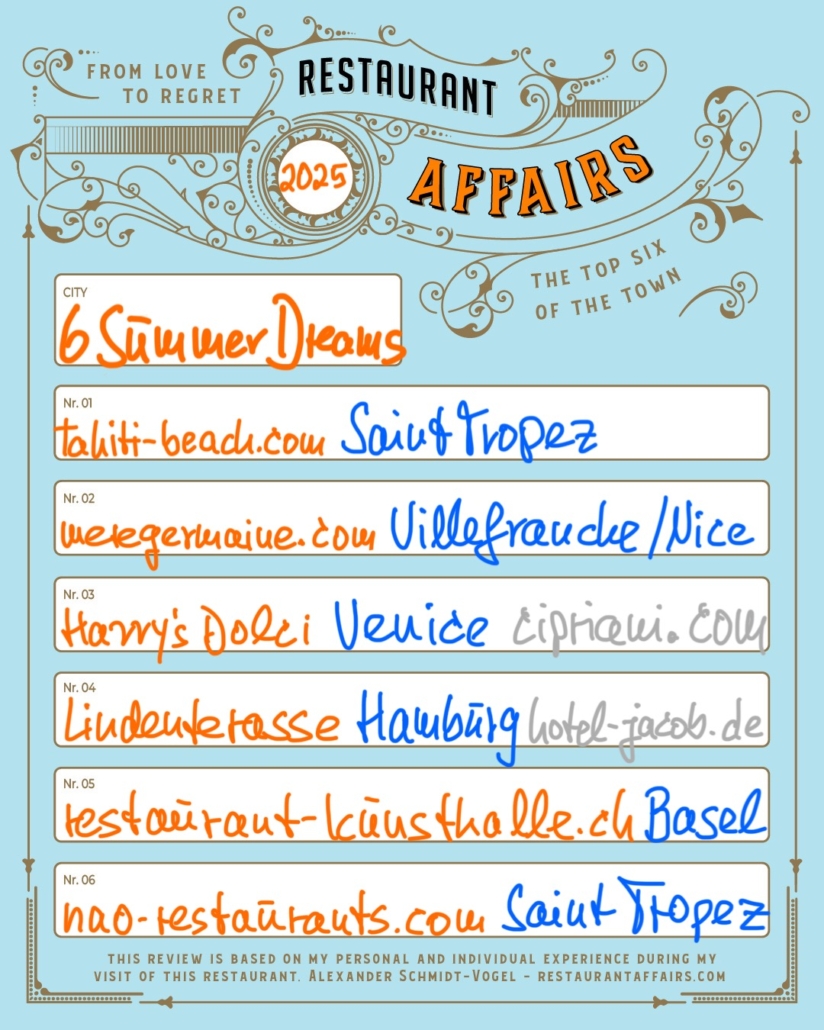 FROM LOVE
TO REGRET
RESTAURANT
AFFAIRS
2025
THE TOP SIX
OF THE TOWN
CITY
6 Sūmmer Dreams
Nr. 01
tahiti-beach.com Saint Tropez
Nr. 02
meregermaine.com Villefranche/Nice
Nr. 03
Harry's Dolci Venice cipriani.com
Nr. 04
Lindenterasse Hambūrg hotel-jacob.de
Nr. 05
restaūrant-kūnsthalle.ch Basel
Nr. 06
nao-restaūrants.com Saint Tropez
THIS REVIEW IS BASED ON MY PERSONAL AND INDIVIDUAL EXPERIENCE DURING MY
VISIT OF THIS RESTAURANT. ALEXANDER SCHMIDT-VOGEL - RESTAURANTAFFAIRS.COM